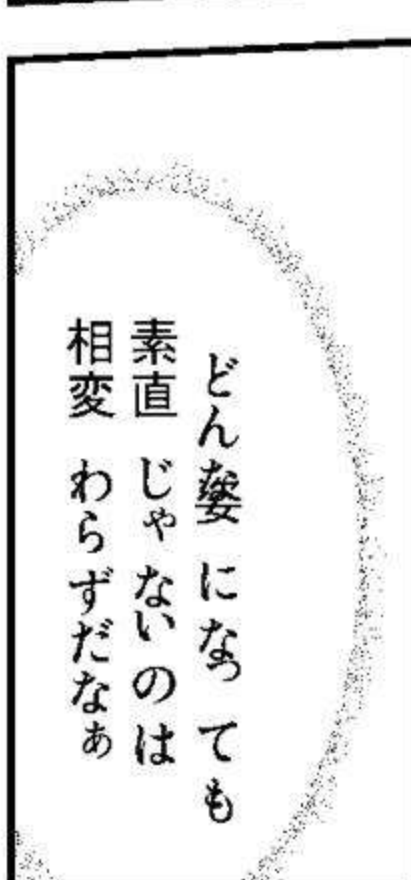 どんな姿になっても
素直じゃないのは
相変わらずだなぁ